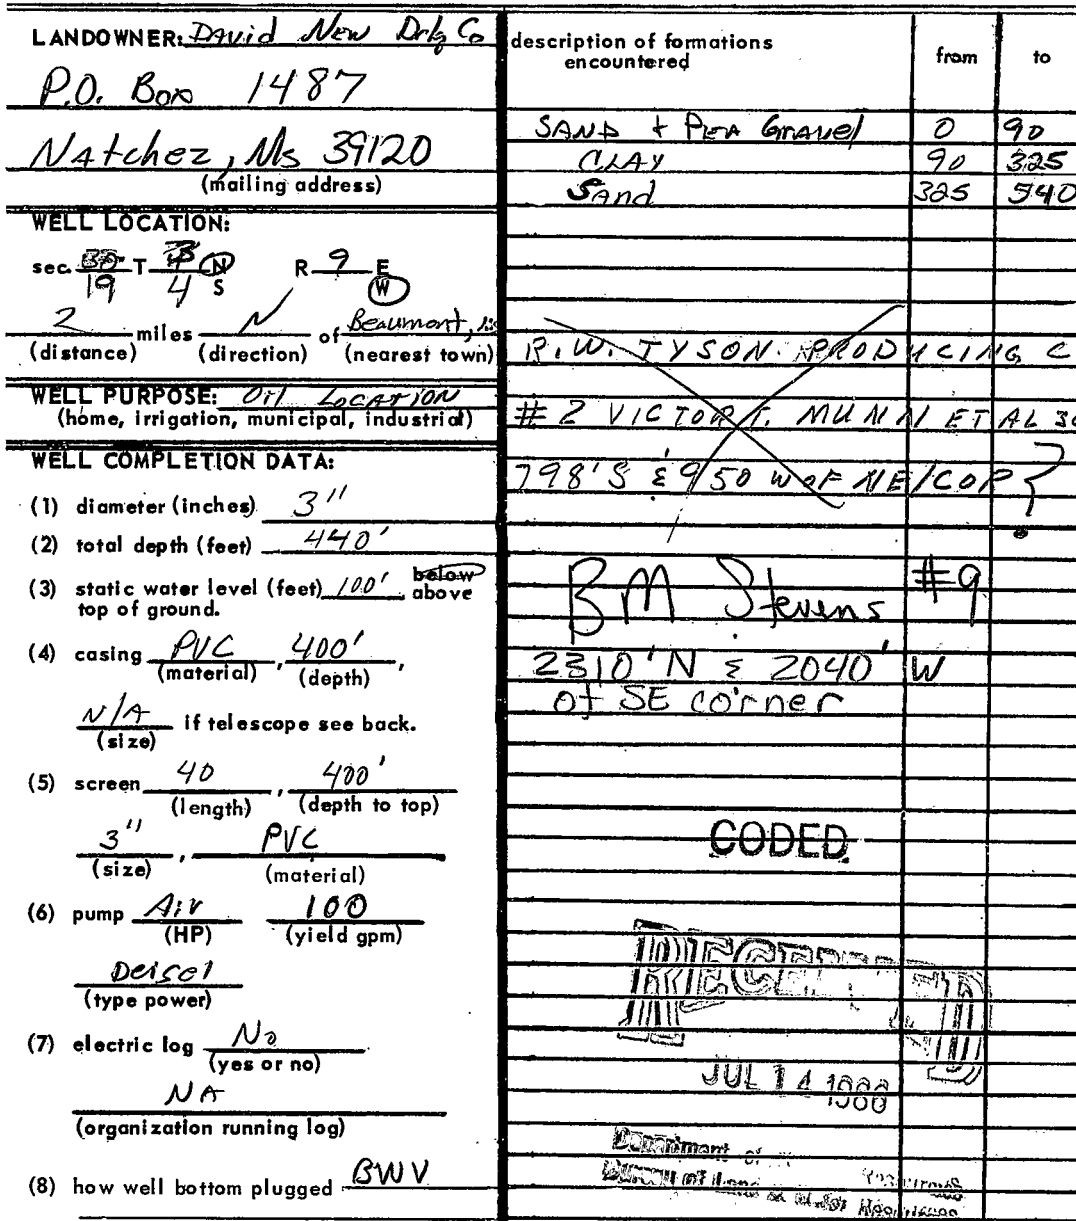 LANDOWNER: David New Drlg Co
P.O. Box 1487
Natchez, Ms 39120
(mailing address)
WELL LOCATION:
sec. 30 T N R 9 E
19 4 S W
2 miles N of Beaumont, Ms
(distance) (direction) (nearest town)
WELL PURPOSE: Oil Location
(home, irrigation, municipal, industrial)
WELL COMPLETION DATA:
(1) diameter (inches) 3"
(2) total depth (feet) 440'
(3) static water level (feet) 100' below
above
top of ground.
(4) casing PVC, 400',
(material) (depth)
N/A if telescope see back.
(size)
(5) screen 40, 400'
(length) (depth to top)
3", PVC
(size) (material)
(6) pump Air 100
(HP) (yield gpm)
Deisel
(type power)
(7) electric log No
(yes or no)
NA
(organization running log)
(8) how well bottom plugged BWV
description of formations
encountered
from to
SAND + Pea Gravel 0 90
CLAY 90 325
Sand 325 540
R.W. TYSON PRODUCING C
#2 VICTOR T. MUNN ET AL 30
798'S & 950 W OF NE/COR ?
BM Stevens #9
2310'N & 2040' W
of SE corner
CODED
RECEIVED
JUL 14
Department of
Bureau of Land